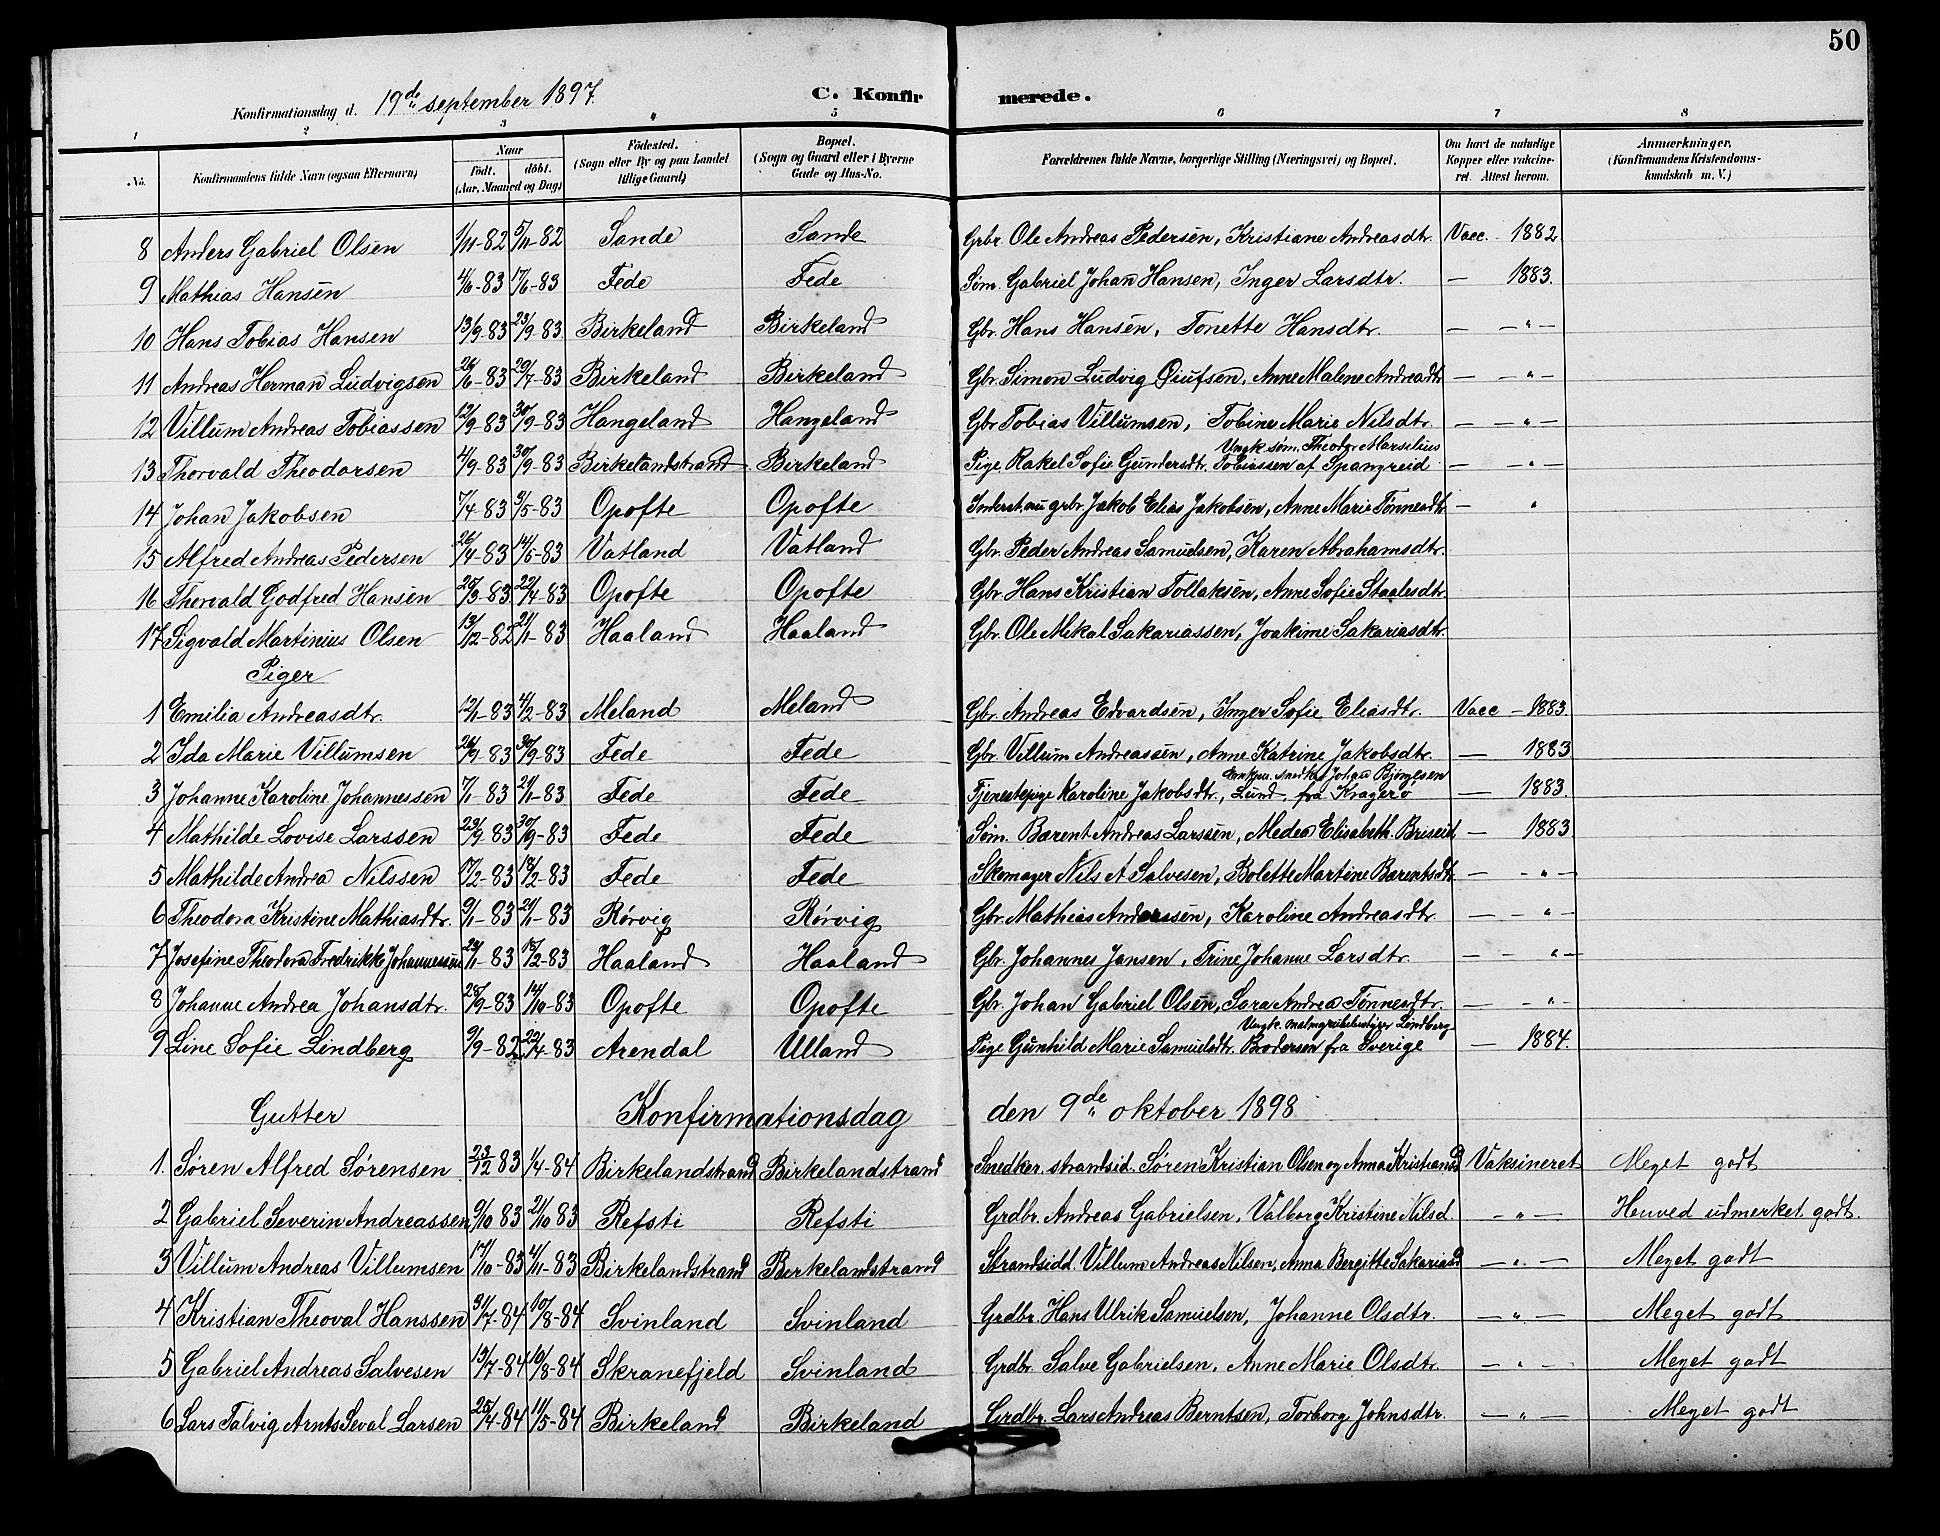 50
Konfirmationsdag d. 19de september 1897. C. Konfirmerede.
1 2 3 4 5 6 7 8
No. Konfirmandens fulde Navn (ogsaa Efternavn) Naar Födt. döbt. (Aar, Maaned og Dag) Födested. (Sogn eller By og paa Landet tillige Gaard) Bopæl. (Sogn og Gaard eller i Byerne Gade og Hus-No. Forældrenes fulde Navne, borgerlige Stilling (Næringsvei) og Bopæl. Om havt de naturlige Kopper eller vakcineret. Attest herom. Anmærkninger, (Konfirmandens Kristendomskundskab m. V.)
8 Anders Gabriel Olsen 1/11-82 5/11-82 Sande Sande Grbr. Ole Andreas Pedersen, Kristiane Andreasdtr. Vacc. 1882
9 Mathias Hansen 4/6-83 17/6-83 Fede Fede Søm. Gabriel Johan Hansen, Inger Larsdtr. — 1883.
10 Hans Tobias Hansen 13/9-83 23/9-83 Birkeland Birkeland Gbr. Hans Hansen, Tonette Hansdtr. — - " -
11 Andreas Herman Ludvigsen 26/6-83 29/7-83 Birkeland Birkeland Gbr. Simon Ludvig Øiufsen, Anne Malene Andreadtr — - " -
12 Villum Andreas Tobiassen 12/9-83 30/9-83 Hangeland Hangeland Gbr Tobias Villumsen, Tobine Marie Nilsdtr. — - " -
13 Thorvald Theodorsen 4/9-83 30/9-83 Birkelandstrand Birkeland Pige Rakel Sofie Gundersdtr. Ungk. søm. Theodor Marsilius Tobiassen af Spangreid — - " -
14 Johan Jakobsen 7/4-83 3/5-83 Opofte Opofte Inderst. au grbr. Jakob Elias Jakobsen, Anne Marie Tønnesdtr — "
15 Alfred Andreas Pedersen 26/4-83 14/5-83 Vatland Vatland Gbr. Peder Andreas Samuelsen, Karen Abrahamsdtr.
16 Thorvald Godfred Hansen 20/3-83 22/4-83 Opofte Opofte Gbr. Hans Kristian Tollaksen, Anne Sofie Staalesdtr.
17 Sigvald Martinius Olsen 13/12-82 21/1-83 Haaland Haaland Gbr. Ole Mikal Sakariassen, Joakime Sakariasdtr.
Piger
1 Emilia Andreasdtr. 12/1-83 4/2-83 Meland Meland Gbr. Andreas Edvardsen, Inger Sofie Eliasdtr. Vacc - 1883.
2 Ida Marie Villumsen 24/9-83 30/9-83 Fede Fede Gbr. Villum Andreassen, Anne Katrine Jakobsdtr. — 1883
3 Johanne Karoline Johannessen 7/1-83 21/1-83 Fede Fede Tjenestepige Karoline Jakobsdtr., Lund, snedker Johan Bjørgesen fra Kragerø — 1883.
4 Mathilde Lovise Larssen 23/9-83 30/9-83 Fede Fede Søm. Barent Andreas Larssen, Medea Elisabeth Briseid — 1883
5 Mathilde Andrea Nilssen 17/2-83 18/2-83 Fede Fede Skomager Nils A Salvesen, Bolette Martine Barentsdtr — - " -
6 Theodora Kristine Mathiasdtr. 9/1-83 21/1-83 Rørvig Rørvig Gbr. Mathias Anderssen, Karoline Andreasdtr. — - " -
7 Josefine Theodora Fredrikke Johannesen 23/1-83 18/2-83 Haaland Haaland Gbr. Johannes Jansen, Trine Johanne Larsdtr. — - " -
8 Johanne Andrea Johansdtr. 28/9-83 14/10-83 Opofte Opofte Gbr. Johan Gabriel Olsen, Sara Andrea Tønnesdtr. — - " -
9 Line Sofie Lindberg 9/9-82 22/4-83 Arendal Ulland Pige Gunhild Marie Samuelsdtr. Ungk. Lindberg Brodersen fra Sverige — 1884.
Gutter Konfirmationsdag den 9de oktober 1898
1. Søren Alfred Sørensen 23/12-83 1/4-84 Birkelandstrand Birkelandstrand Snedker. strandsid. Søren Kristian Olsen og Anna Kristiansd Vaksineret Meget godt
2 Gabriel Severin Andreassen 9/10 83 21/10 83 Refsti Refsti Grdbr. Andreas Gabrielsen, Valborg Kristine Nilsd. — " — Henved udmerket godt.
3 Villum Andreas Villumsen 17/10-83 4/11-83 Birkelandstrand Birkelandstrand Strandsidd. Villum Andreas Nilsen, Anna Bergitte Sakariasd — " — Meget godt
4 Kristian Theoval Hanssen 31/7-84 10/8-84 Svinland Svinland Grdbr. Hans Ulrik Samuelsen, Johanne Olsdtr. — " — Meget godt
5 Gabriel Andreas Salvesen 13/7-84 10/8-84 Skranefjeld Svinland Grdbr. Salve Gabrielsen, Anne Marie Olsdtr. — " — Meget godt
6 Lars Talvig Arnts Seval Larsen 25/4-84 11/5-84 Birkeland Birkeland Grdbr. Lars Andreas Berntsen, Torborg Johnsdtr. — " — Meget godt